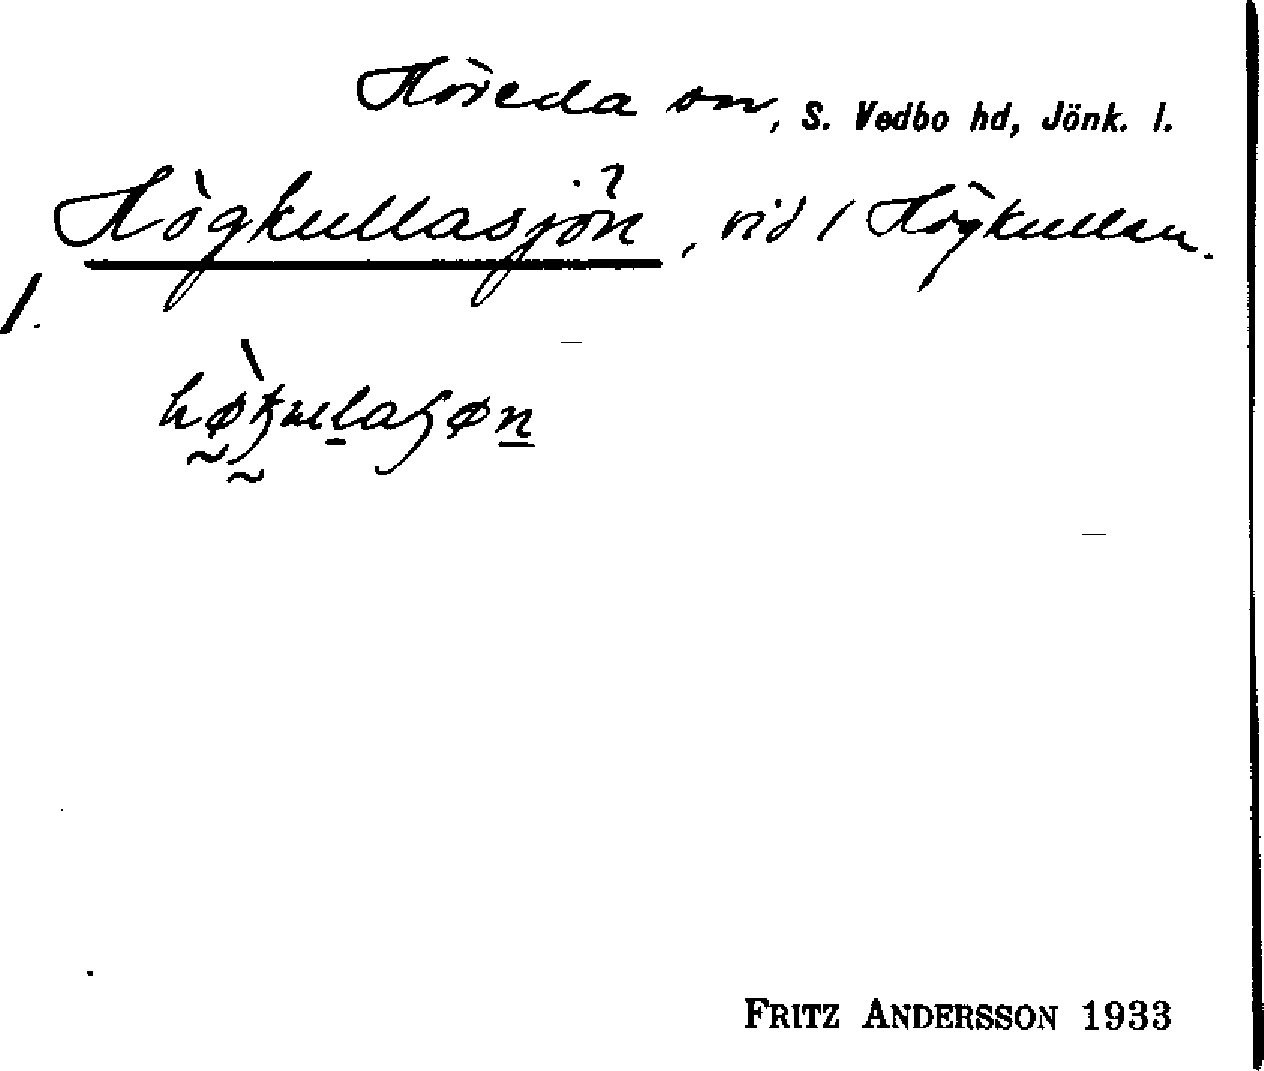 Höreda sn, S. Vedbo hd, Jönk. l.
Högkullasjön, vid / Högkullen.
1.
FRITZ ANDERSSON 1933